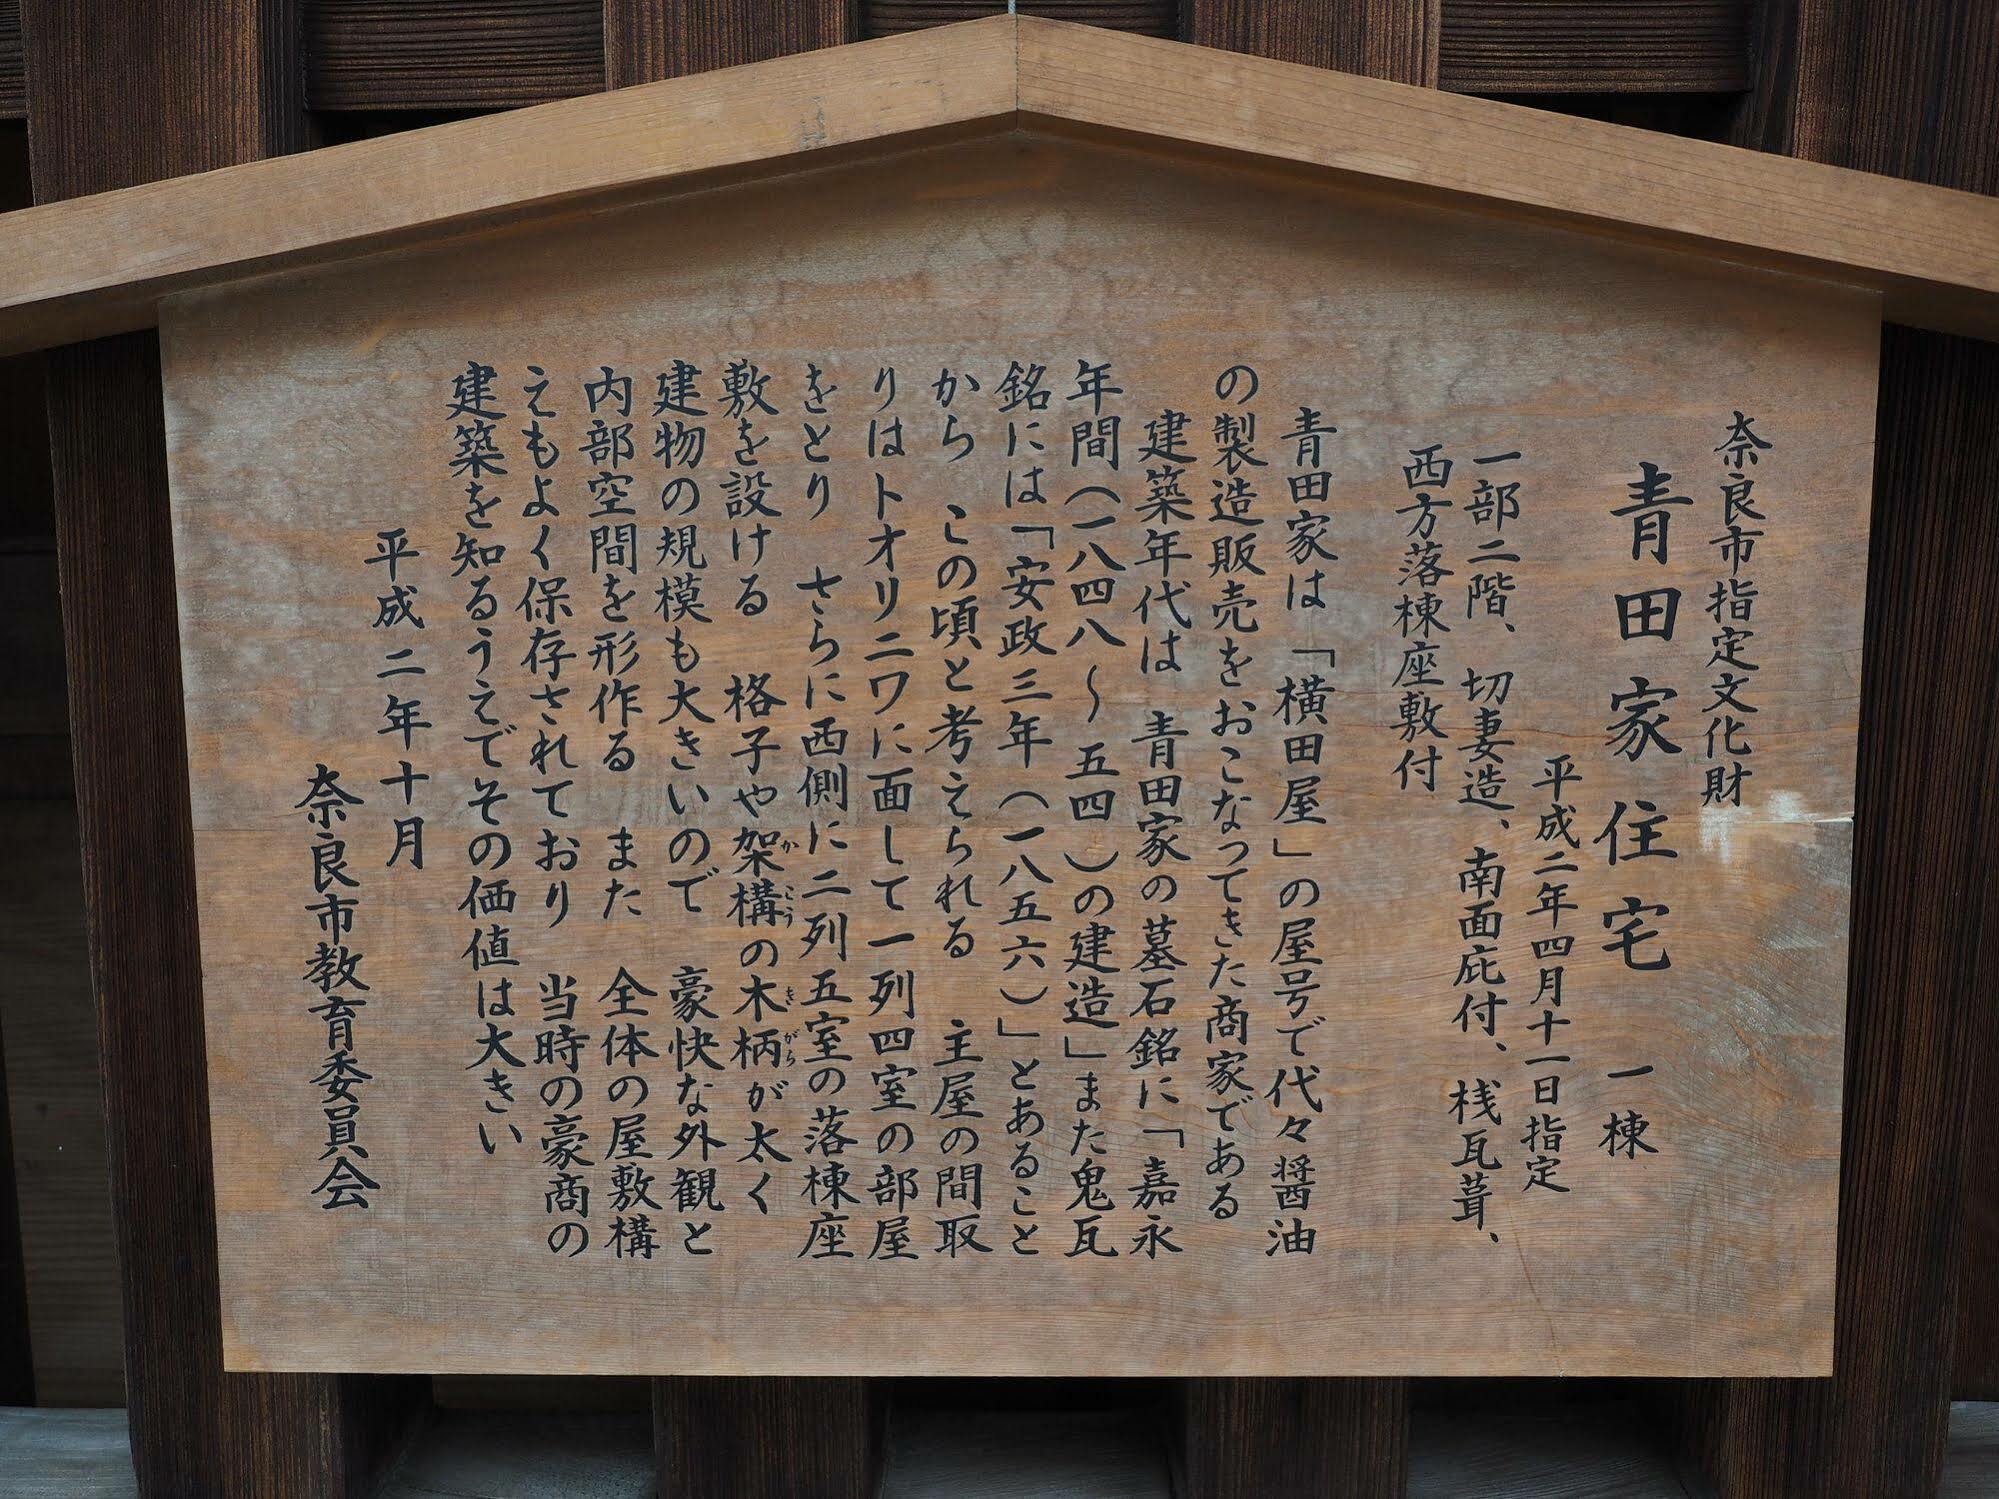 奈良市指定文化財
青田家住宅 一棟
平成二年四月十一日指定
一部二階、切妻造、南面庇付、桟瓦葺、
西方落棟座敷付
青田家は「横田屋」の屋号で代々醤油
の製造販売をおこなってきた商家である
建築年代は 青田家の墓石銘に「嘉永
年間(一八四八~五四)の建造」また鬼瓦
銘には「安政三年(一八五六)」とあること
から この頃と考えられる 主屋の間取
りはトオリニワに面して一列四室の部屋
をとり さらに西側に二列五室の落棟座
敷を設ける 格子や架構の木柄が太く
かこう きがら
建物の規模も大きいので 豪快な外観と
内部空間を形作る また 全体の屋敷構
えもよく保存されており 当時の豪商の
建築を知るうえでその価値は大きい
平成二年十月
奈良市教育委員会